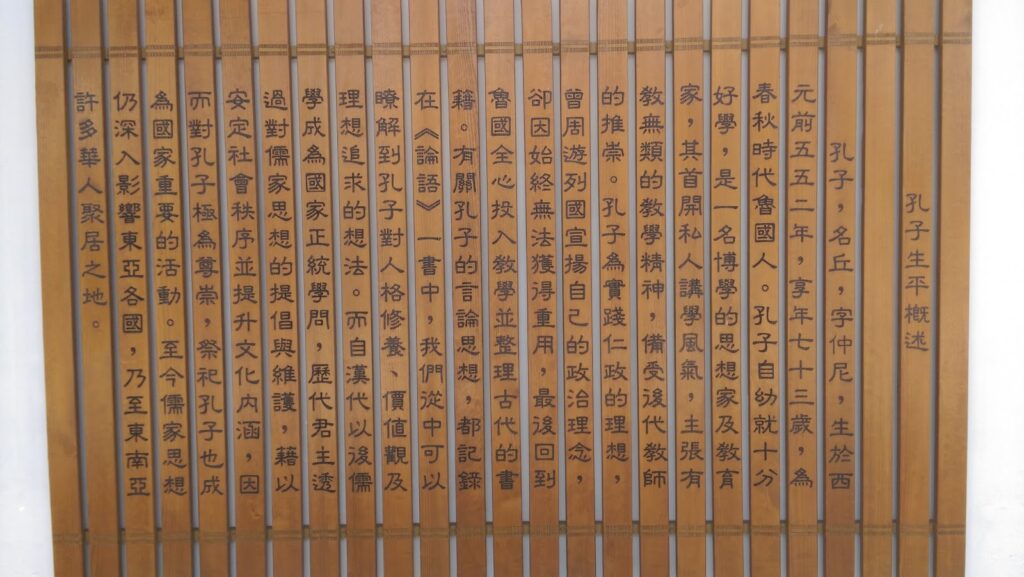 孔子生平概述
孔子，名丘，字仲尼，生於西
元前五五二年，享年七十三歲，為
春秋時代魯國人。孔子自幼就十分
好學，是一名博學的思想家及教育
家，其首開私人講學風氣，主張有
教無類的教學精神，備受後代教師
的推崇。孔子為實踐仁政的理想，
曾周遊列國宣揚自己的政治理念，
卻因始終無法獲得重用，最後回到
魯國全心投入教學並整理古代的書
籍。有關孔子的言論思想，都記錄
在《論語》一書中，我們從中可以
瞭解到孔子對人格修養、價值觀及
理想追求的想法。而自漢代以後儒
學成為國家正統學問，歷代君主透
過對儒家思想的提倡與維護，藉以
安定社會秩序並提升文化內涵，因
而對孔子極為尊崇，祭祀孔子也成
為國家重要的活動。至今儒家思想
仍深入影響東亞各國，乃至東南亞
許多華人聚居之地。